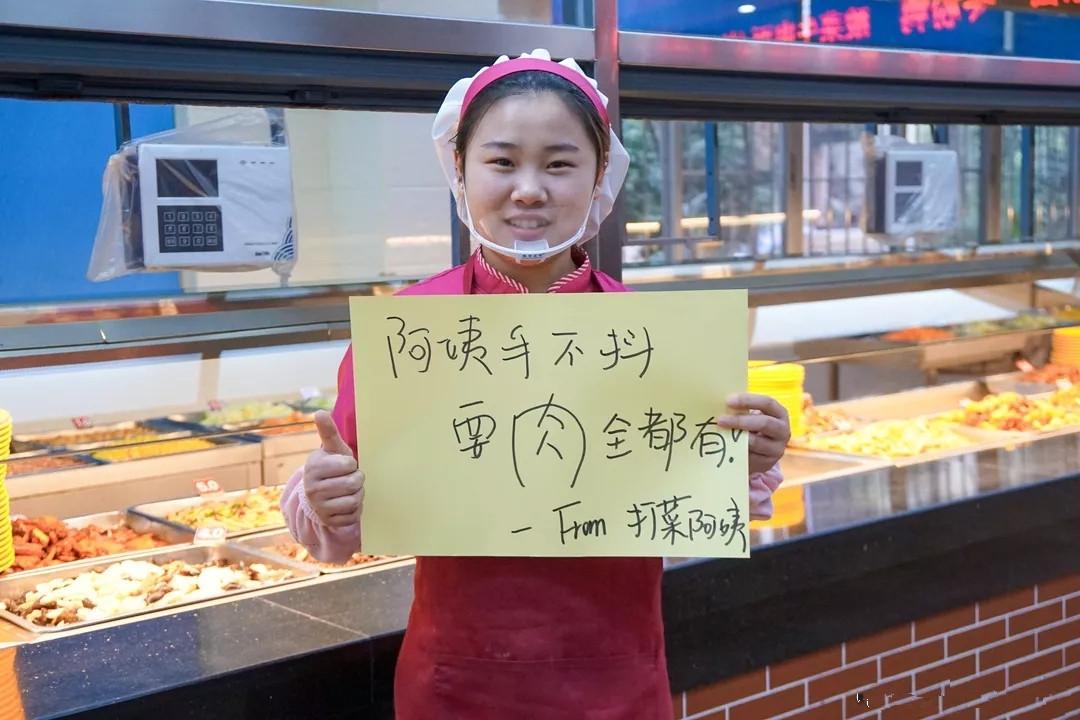 阿姨手不抖
要肉全都有!
— From 打菜阿姨
5.0